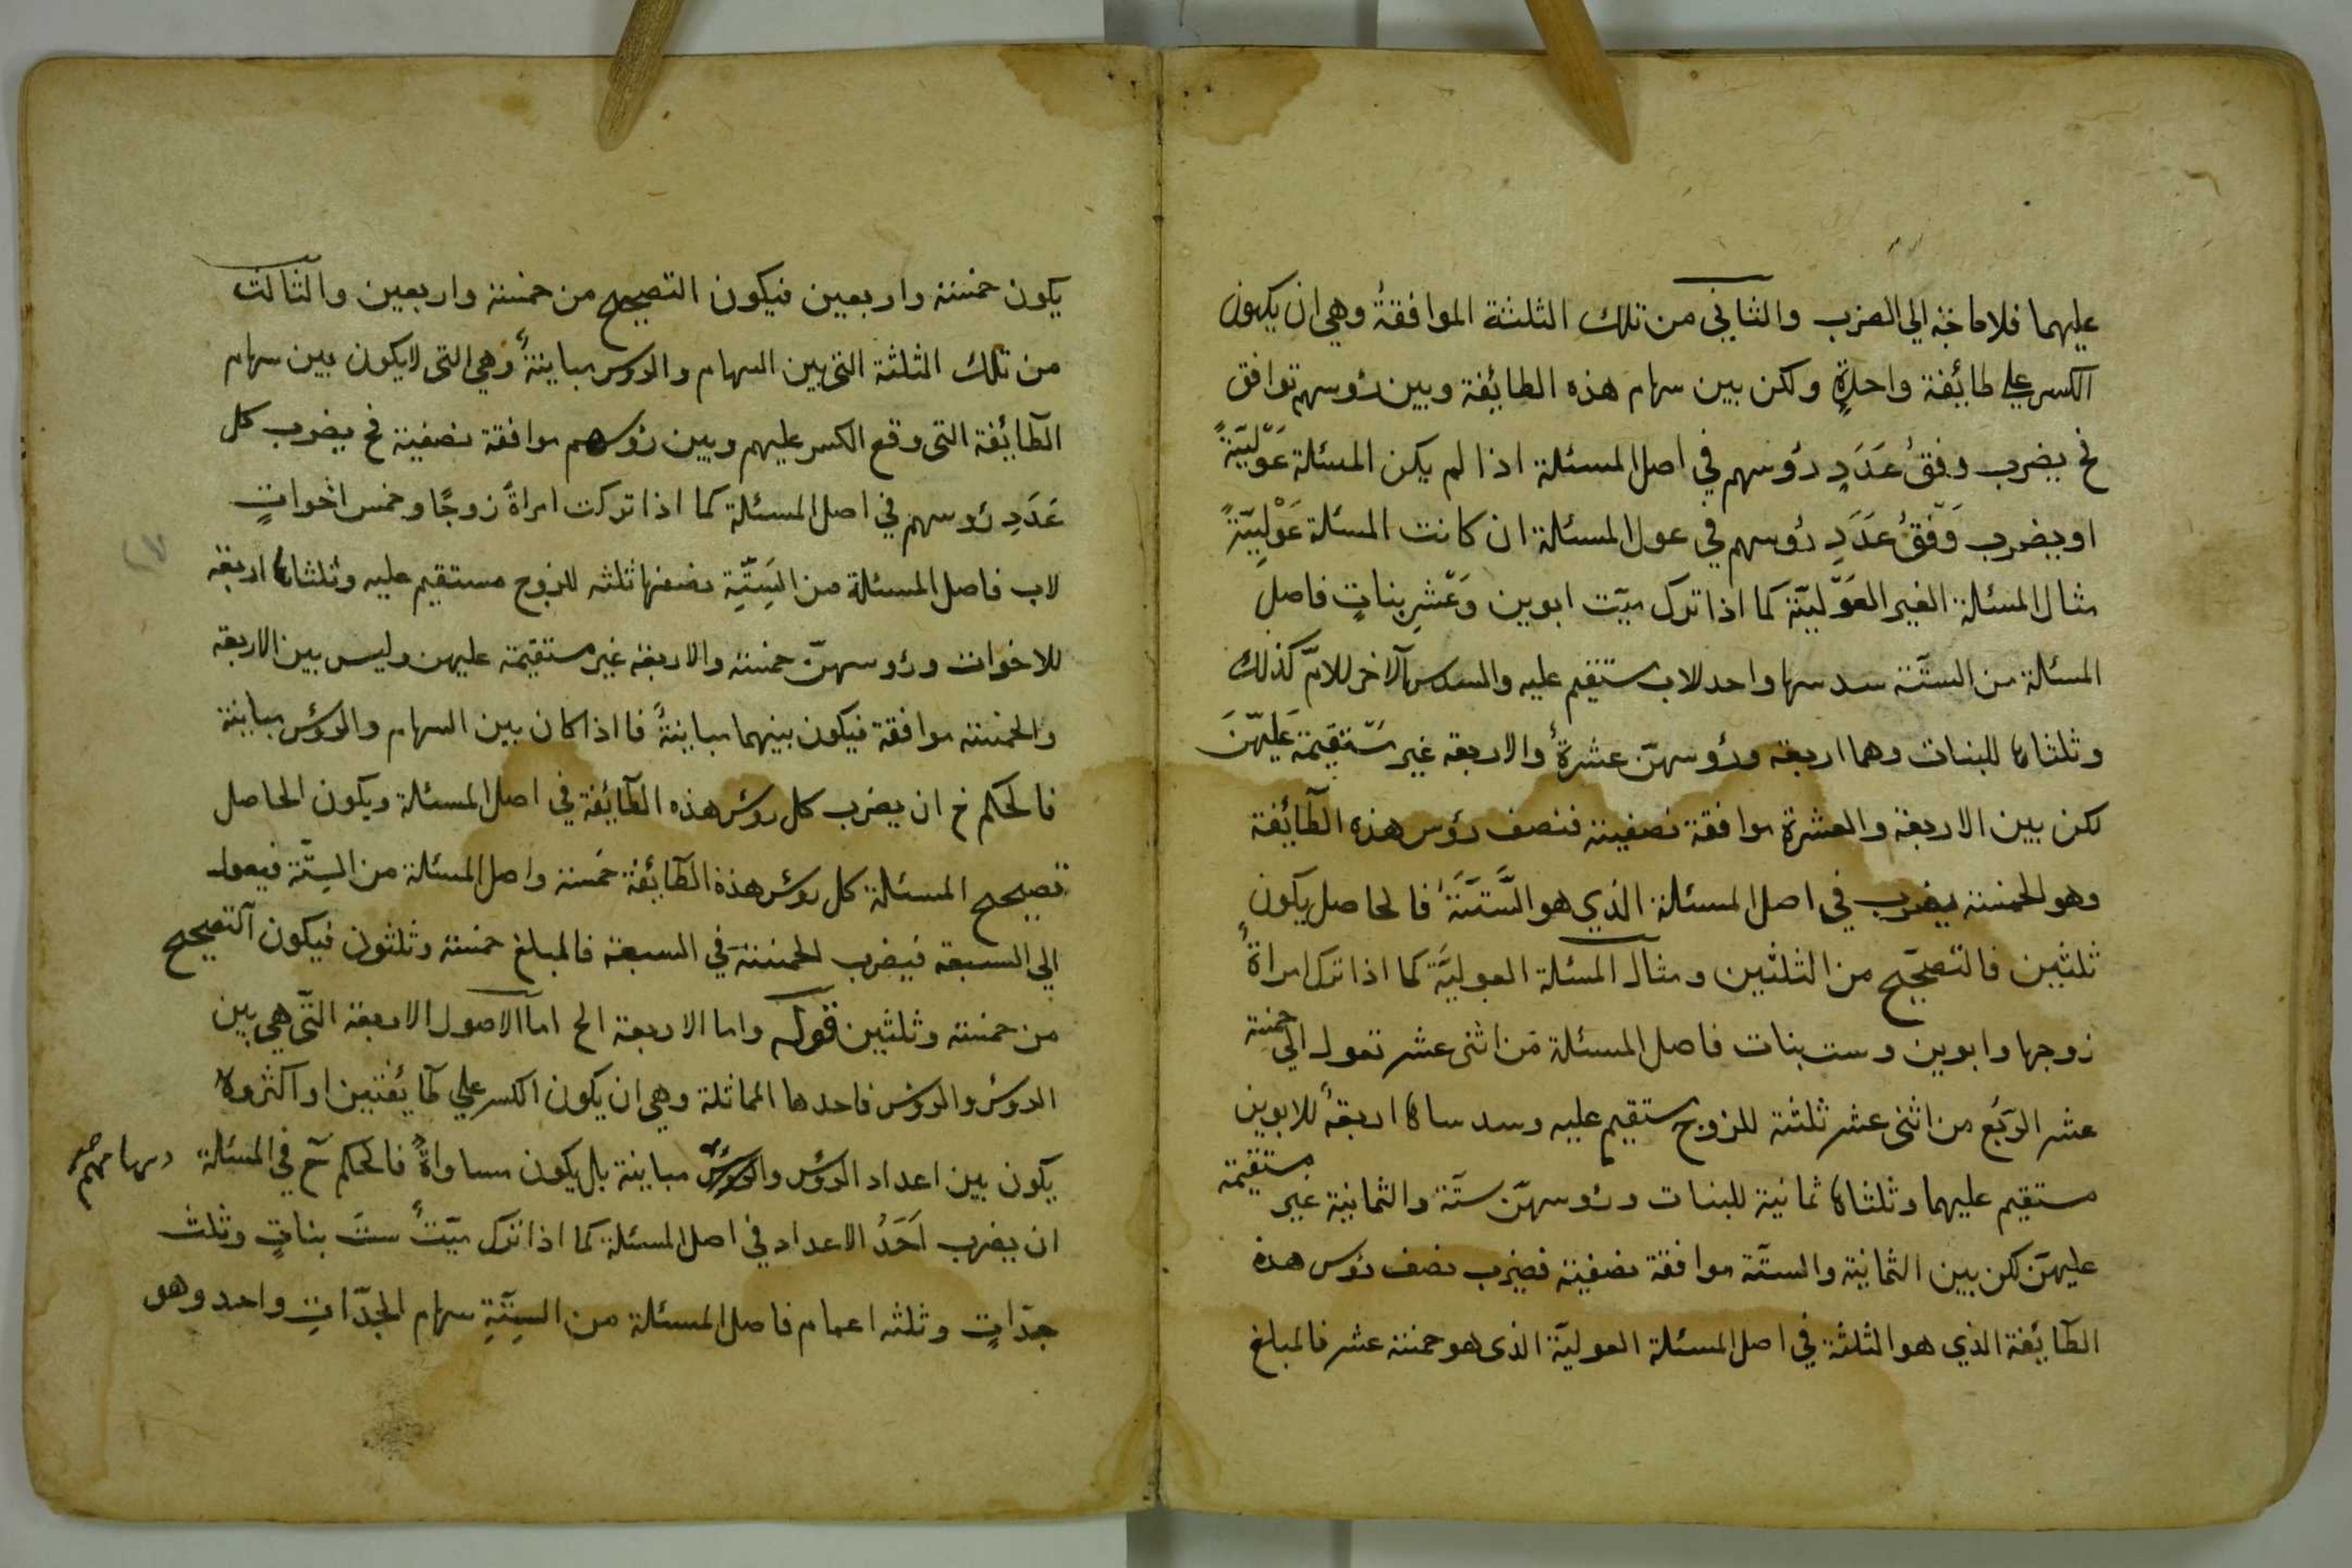 عليهما فلا حاجة الي الضرب والثاني من تلك الثلثة الموافقةُ وهي ان يكون
الكسر علي طائفة واحدةٍ ولكن بين سهام هذه الطائفة وبين رؤسهم توافق
فح يضرب وفقُ عَدَدِ رؤسهم في اصل المسئلة اذا لم يكن المسئلة عَوْليّةً
او يضرب وَفْقُ عَدَدِ رؤسهم في عول المسئلة ان كانت المسئلة عَوْلِيّةً
مثال المسئلة الغير العَوْليّة كما اذا ترك ميّت ابوين وَعَشْرِ بناتٍ فاصل
المسئلة من الستّة سدسها واحد للاب مستقيم عليه والسدس الآخر للامّ كذلك
وثلثاها للبنات وهما اربعة ورؤسهنّ عشرةٌ والاربعة غير مستقيمة عَليهنّ
لكن بين الاربعة والعشرة موافقة نصفية فنصف رؤس هذه الطّائفة
وهو الخمسة يضرب في اصل المسئلة الذي هو السّتّة فالحاصل يكون
ثلثين فالتصحيح من الثلثين ومثال المسئلة العوليّة كما اذا ترك امراةٌ
زوجها وابوين وست بنات فاصل المسئلة من اثنى عشر تعول الي خمسة
عشر الرّبُع من اثنى عشر ثلثة للزوج مستقيم عليه وسدساها اربعةٌ للابوين
مستقيم عليهما وثلثاها ثمانية للبنات ورؤسهنّ ستّة والثمانية غير مستقيمة
عليهنّ لكن بين الثمانية والستّة موافقة نصفية فيضرب نصف رؤس هذه
الطّائفة الذي هو الثلثة في اصل المسئلة العوليّة الذى هو خمسة عشر فالمبلغ
يكون خمسة واربعين فيكون التصحيح من خمسة واربعين والثالث
من تلك الثلثة التى بين السهام والرؤس مباينةٌ وهي التى لا يكون بين سهام
الطّائفة التى وقع الكسر عليهم وبين رؤسهم موافقة نصفية فح يضرب كل
عَدَدِ رؤسهم في اصل المسئلة كما اذا تركت امراةٌ زوجًا وخمس اخواتٍ
لاب فاصل المسئلة من السِّتّةِ نصفها ثلثه للزوج مستقيم عليه وثلثاها اربعة
للاخوات ورؤسهنّ خمسة والاربعة غير مستقيمة عليهن وليس بين الاربعة
والخمسة موافقة فيكون بينهما مباينةً فاذا كان بين السهام والرؤس مباينة
فالحكم ح ان يضرب كل رؤس هذه الطّائفة في اصل المسئلة ويكون الحاصل
تصحيح المسئلة كل رؤس هذه الطّائفة خمسة واصل المسئلة من السِتّة فيعول
الي السبعة فيضرب الخمسة في السبعة فالمبلغ خمسة وثلثون فيكون التصحيح
من خمسة وثلثين قوله واما الاربعة الخ اما الاصول الاربعة التّى هي بين
الرؤس والرؤس فاحدها المماثلة وهي ان يكون الكسر علي طائفتين او اكثر ولا
يكون بين اعداد الرؤس والرؤس مباينة بل يكون مساواةٌ فالحكم ح في المسئلة
ان يضرب اَحَدُ الاعداد في اصل المسئلة كما اذا ترك ميّتٌ ستّ بناتٍ وثلث
جدّاتٍ وثلثه اعمام فاصل المسئلة من السِتّةِ سهام الجدّاتِ واحد وهو